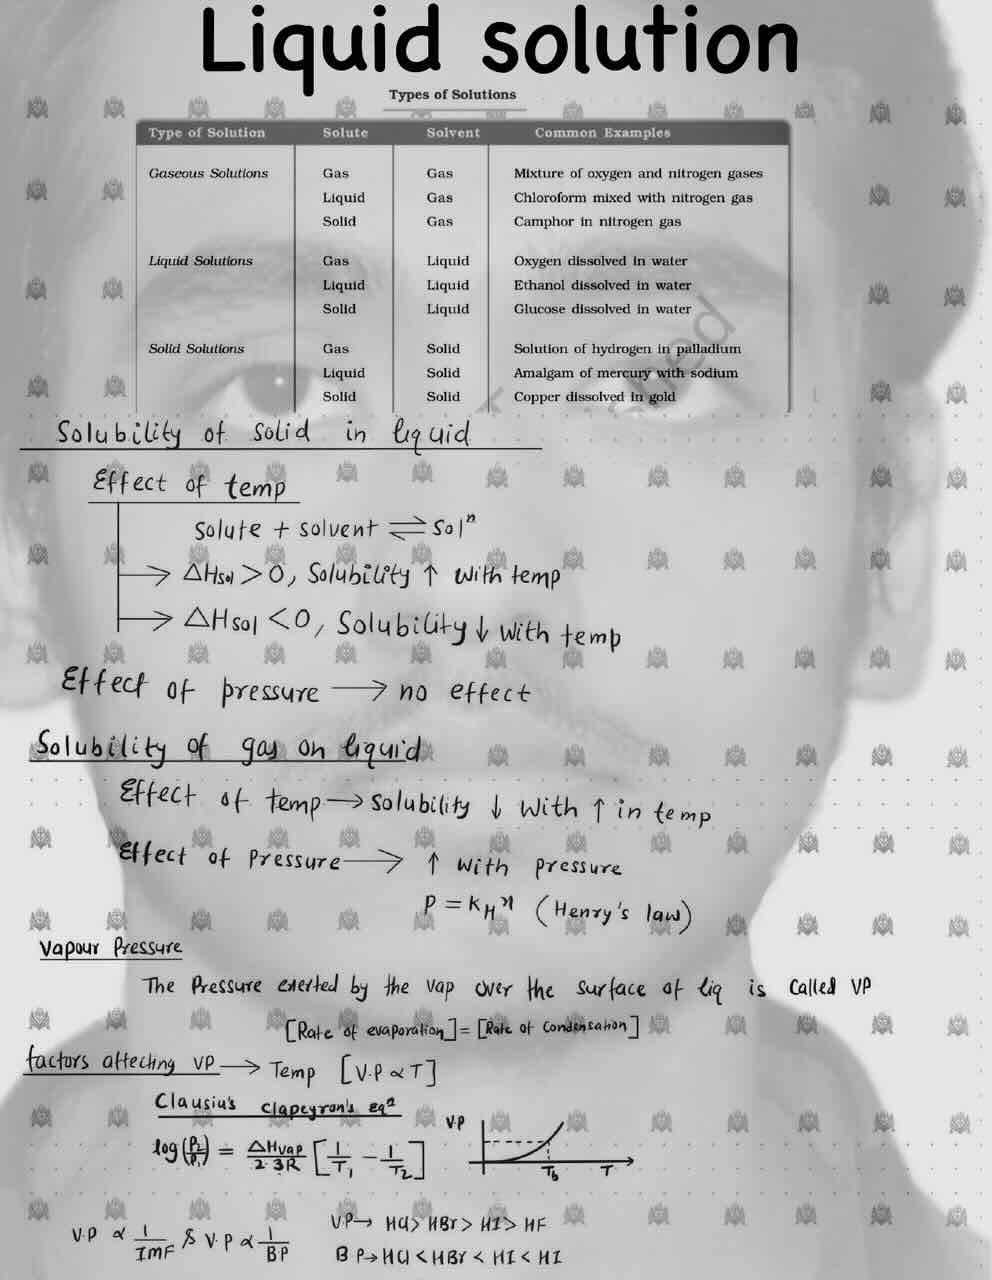 Liquid solution
Types of Solutions
Type of Solution Solute Solvent Common Examples
Gaseous Solutions Gas Gas Mixture of oxygen and nitrogen gases
Liquid Gas Chloroform mixed with nitrogen gas
Solid Gas Camphor in nitrogen gas
Liquid Solutions Gas Liquid Oxygen dissolved in water
Liquid Liquid Ethanol dissolved in water
Solid Liquid Glucose dissolved in water
Solid Solutions Gas Solid Solution of hydrogen in palladium
Liquid Solid Amalgam of mercury with sodium
Solid Solid Copper dissolved in gold
Solubility of solid in liquid
Effect of temp
solute + solvent ⇌ Solⁿ
→ ΔHsol > 0, Solubility ↑ with temp
→ ΔHsol < 0, Solubility ↓ with temp
Effect of pressure → no effect
Solubility of gas on liquid
Effect of temp → solubility ↓ with ↑ in temp
Effect of Pressure → ↑ with pressure
P = K_H x (Henry's law)
Vapour Pressure
The Pressure exerted by the vap over the surface of liq is called VP
[Rate of evaporation] = [Rate of Condensation]
factors affecting VP → Temp [V.P ∝ T]
Clausius Clapeyron's eqⁿ
log(P₂/P₁) = ΔHvap/2.3R [1/T₁ - 1/T₂]
V.P
T_b T
V.P ∝ 1/IMF & V.P ∝ 1/B.P
V.P → HCl > HBr > HI > HF
B P → HCl < HBr < HI < HI